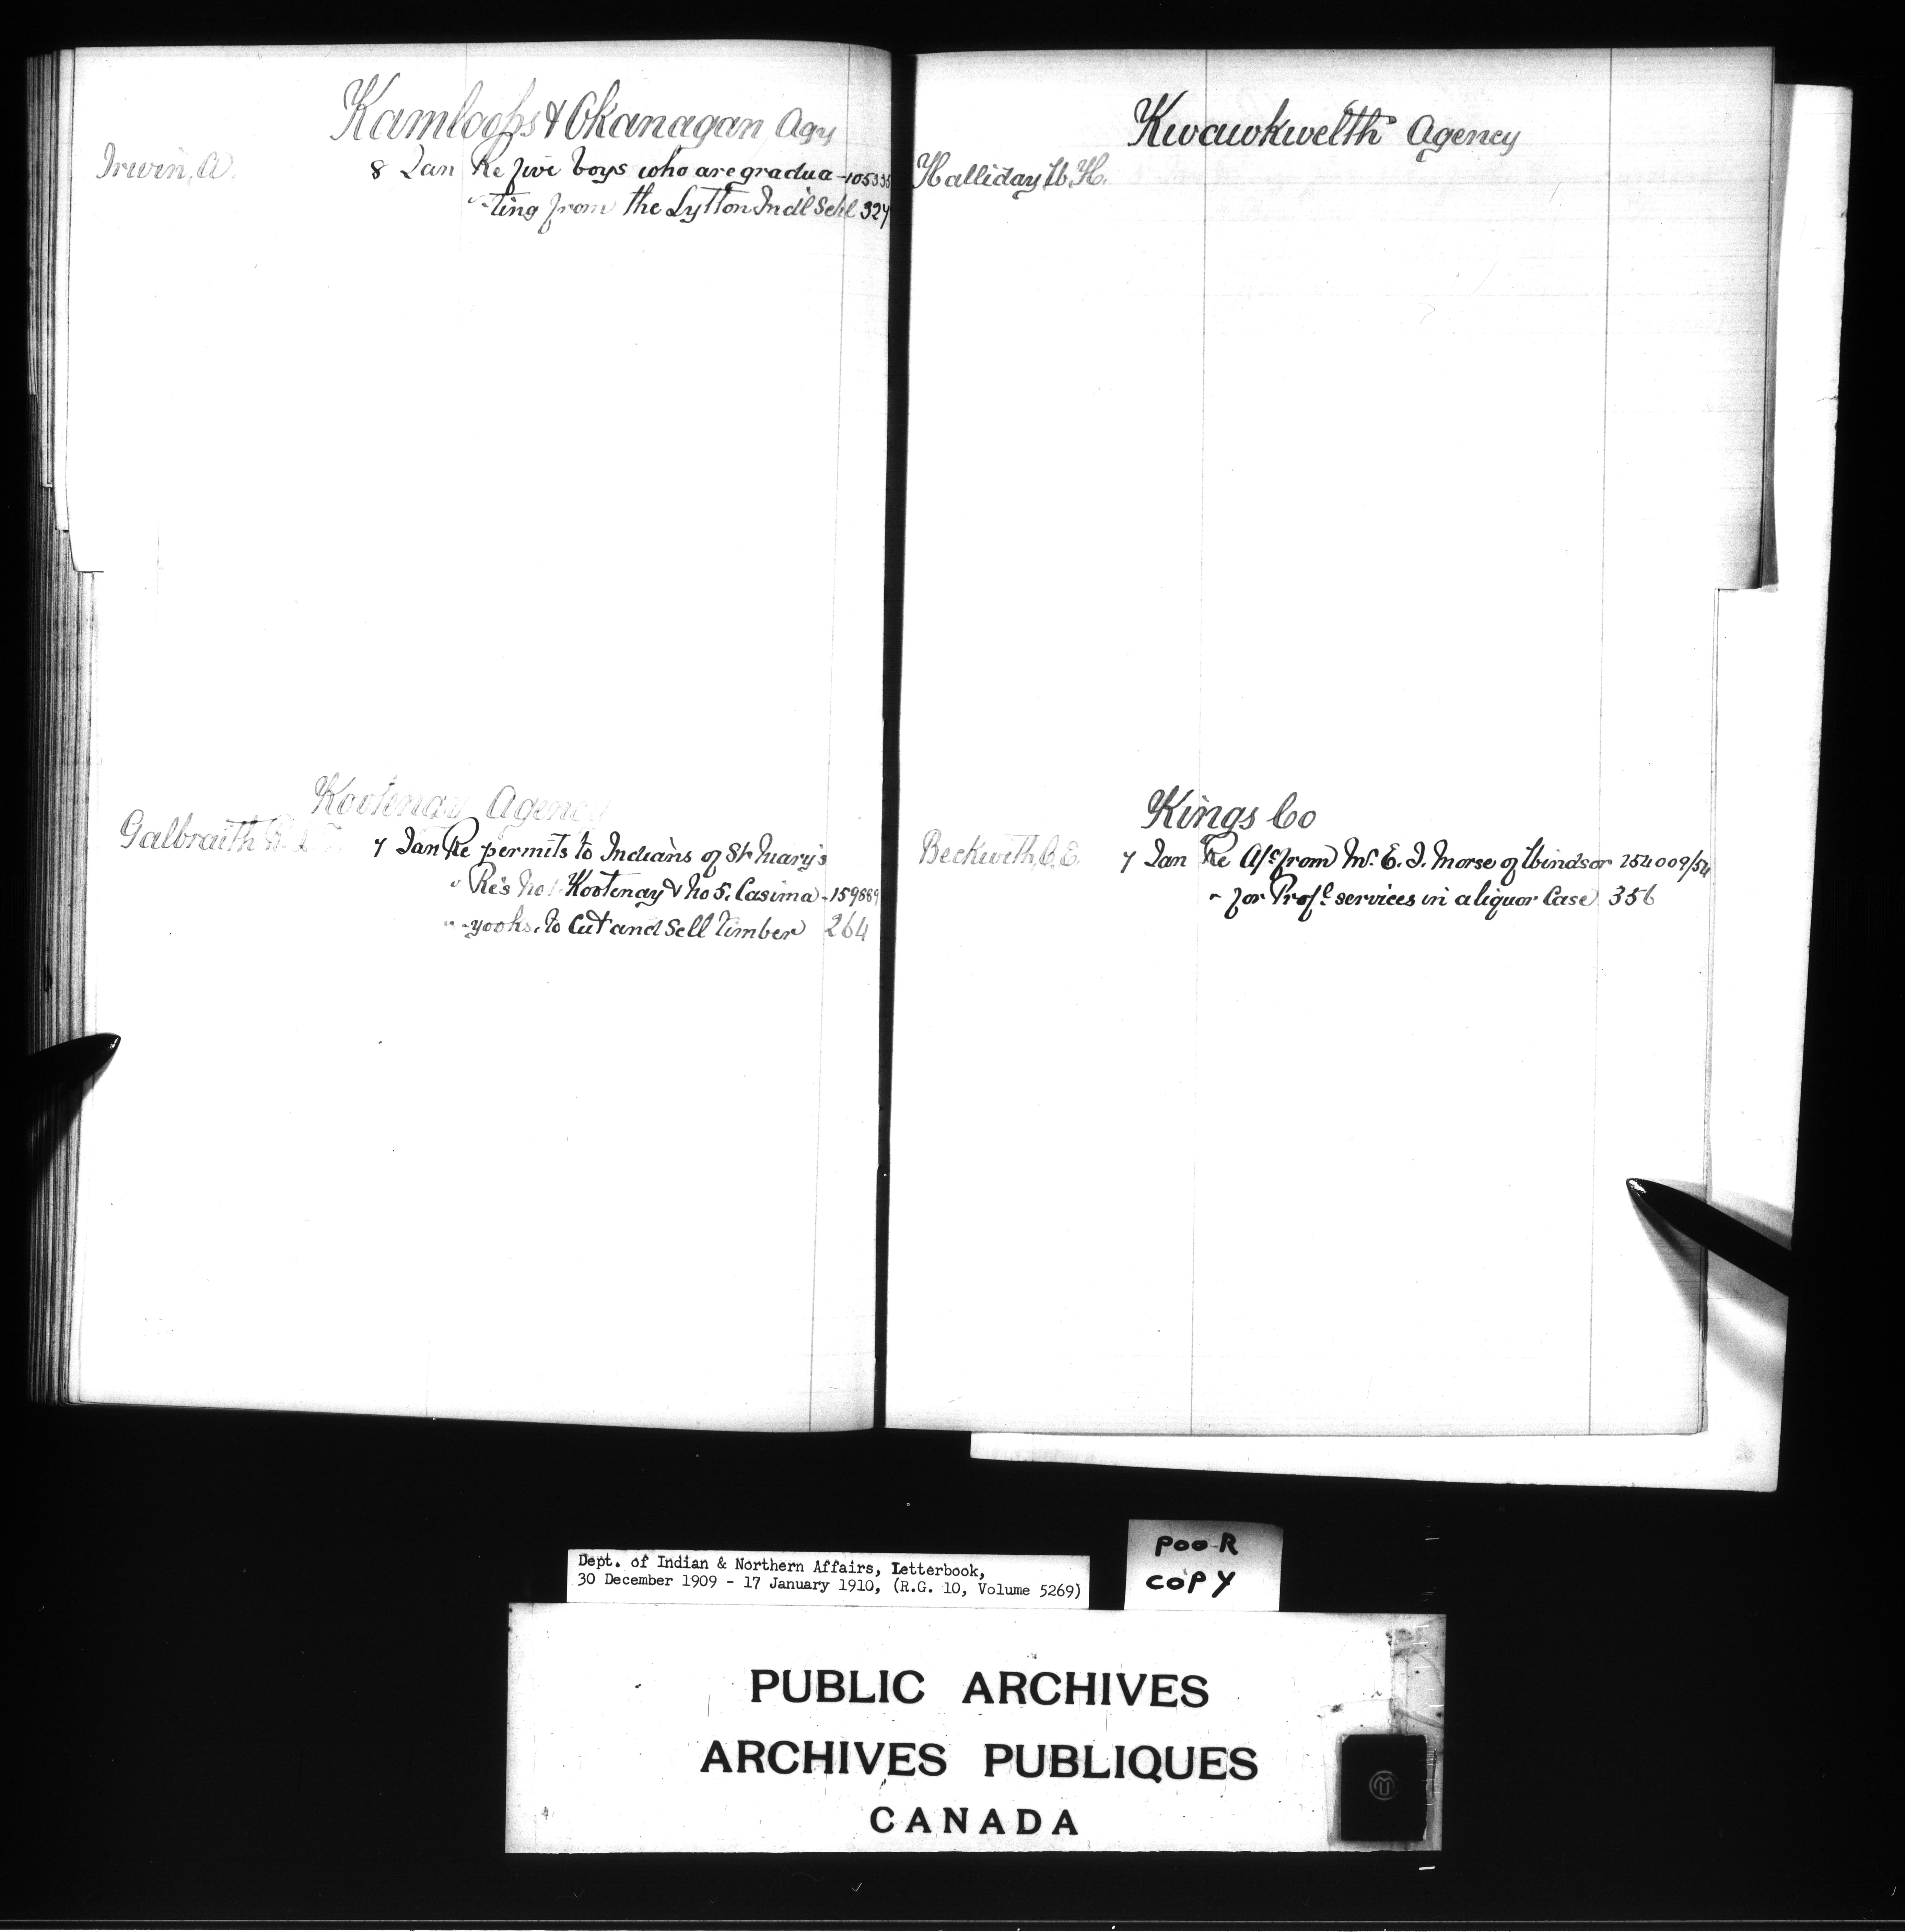 Kamloops & Okanagan Agy
Irwin, A. 8 Jan Re five boys who are gradua- 105335
-ting from the Lytton Ind'l Schl 324
Kootenay Agency
Galbraith 7 Jan Re permits to Indians of St Mary's
" Re's No 1 Kootenay & No 5. Casima- 159889
" -yooks, to Cut and Sell Timber 264
Kwawkwelth Agency
Halliday W. H.
Kings Co
Beckwith, C. E. 7 Jan Re A/c from Mr. E. J. Morse of Windsor 254009/54
" for Prof'l services in a liquor Case 356
Dept. of Indian & Northern Affairs, Letterbook,
30 December 1909 - 17 January 1910, (R.G. 10, Volume 5269)
POOR
COPY
PUBLIC ARCHIVES
ARCHIVES PUBLIQUES
CANADA